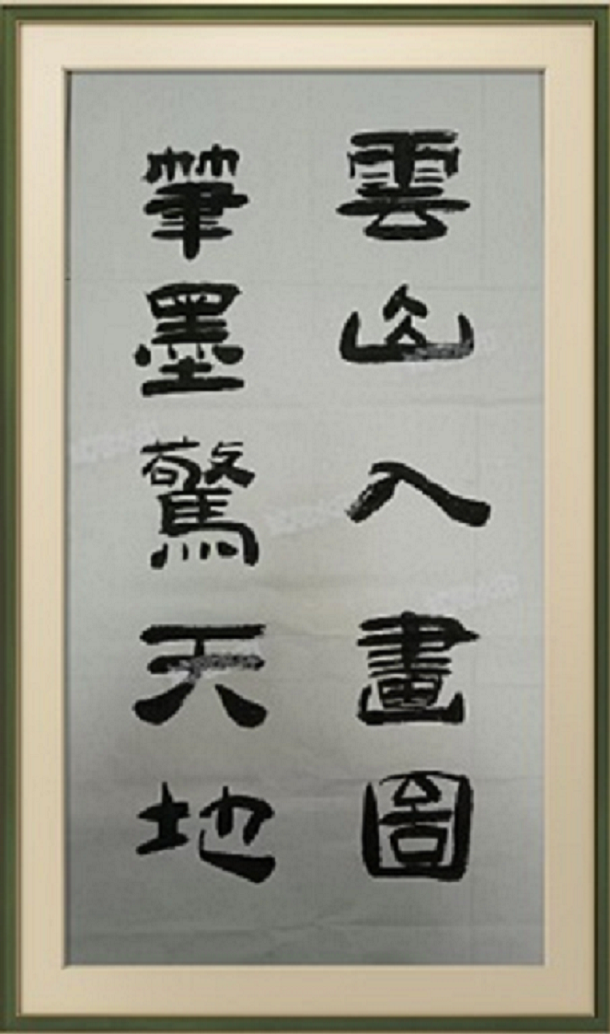 雲山入畫圖
筆墨驚天地